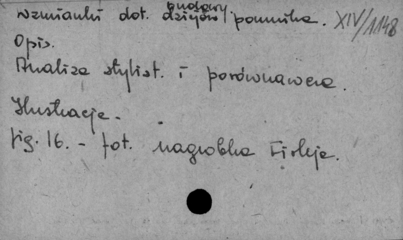 Wzmianki dot. budowy pomnika. XIV/1148
Opis.
Analiza stylist. i porównawcza.
Ilustracje.
fig. 16. - fot. nagrobka Firleja.